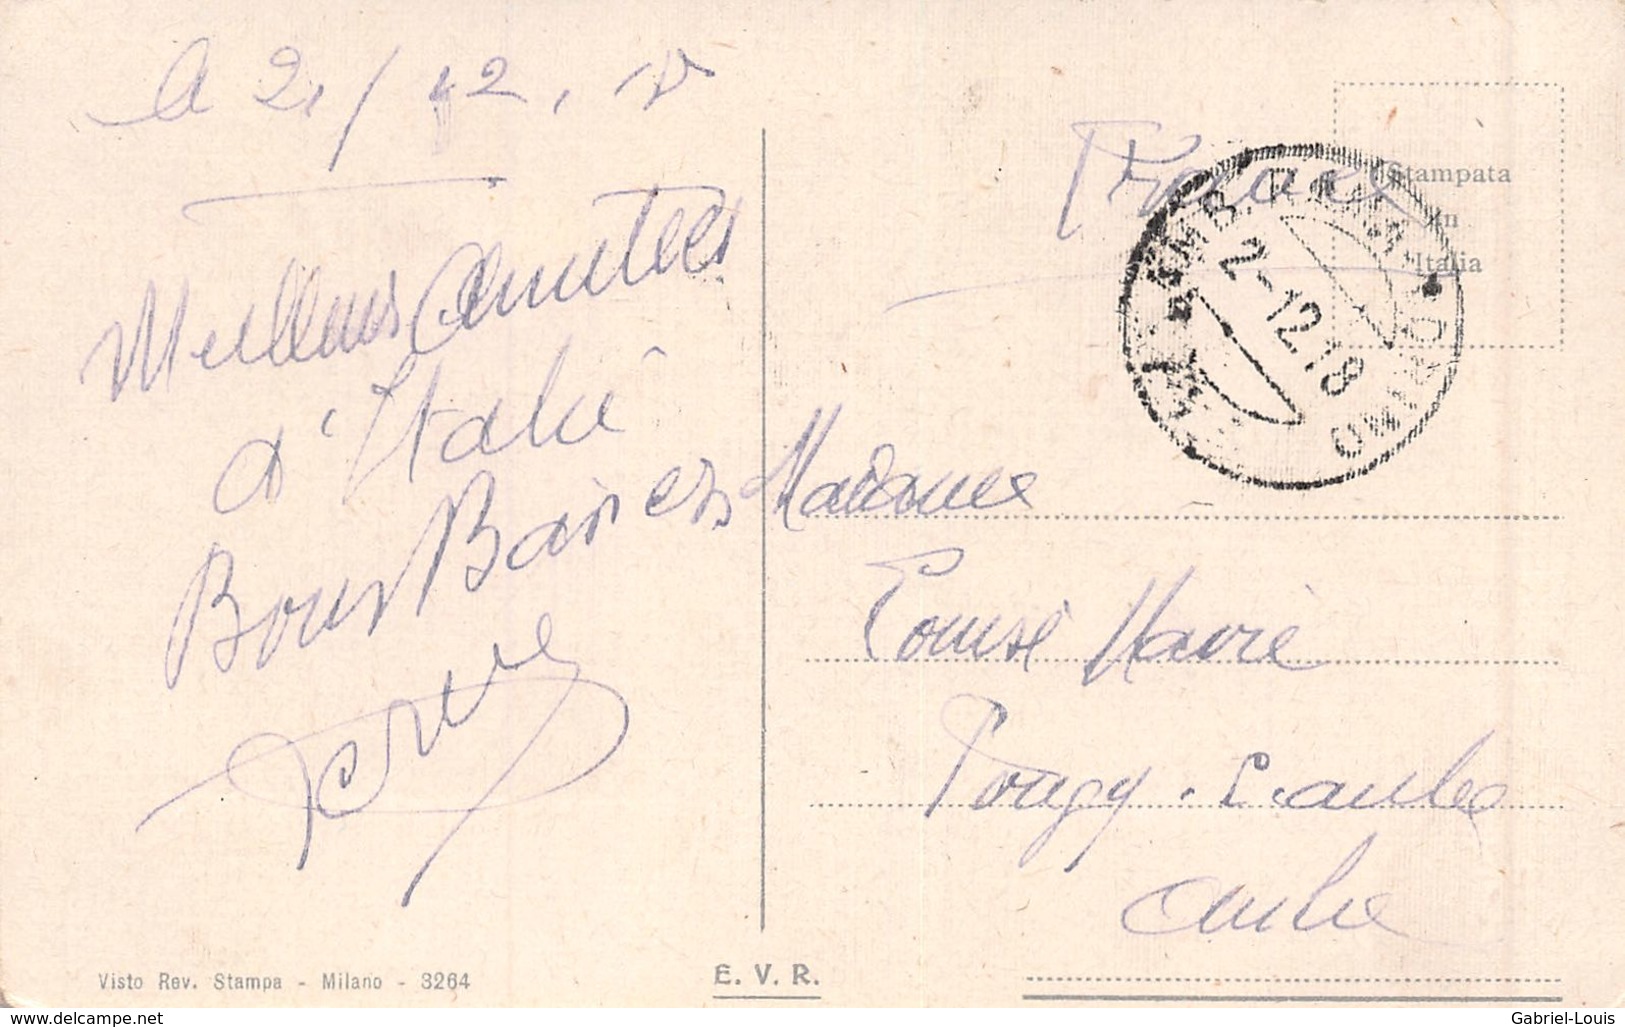 le 2/12. 18
Meilleurs Amitiées
d'Italie
Bons Baisers
France
Stampata
in
Italia
2-12.18
TORINO
Madame
Louise Marie
Pougy. s. aube
aube
Visto Rev. Stampa - Milano - 3264
E. V. R.
www.delcampe.net
Gabriel-Louis